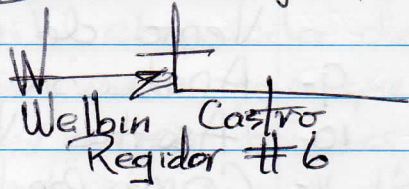 Welbin Castro
Regidor #6